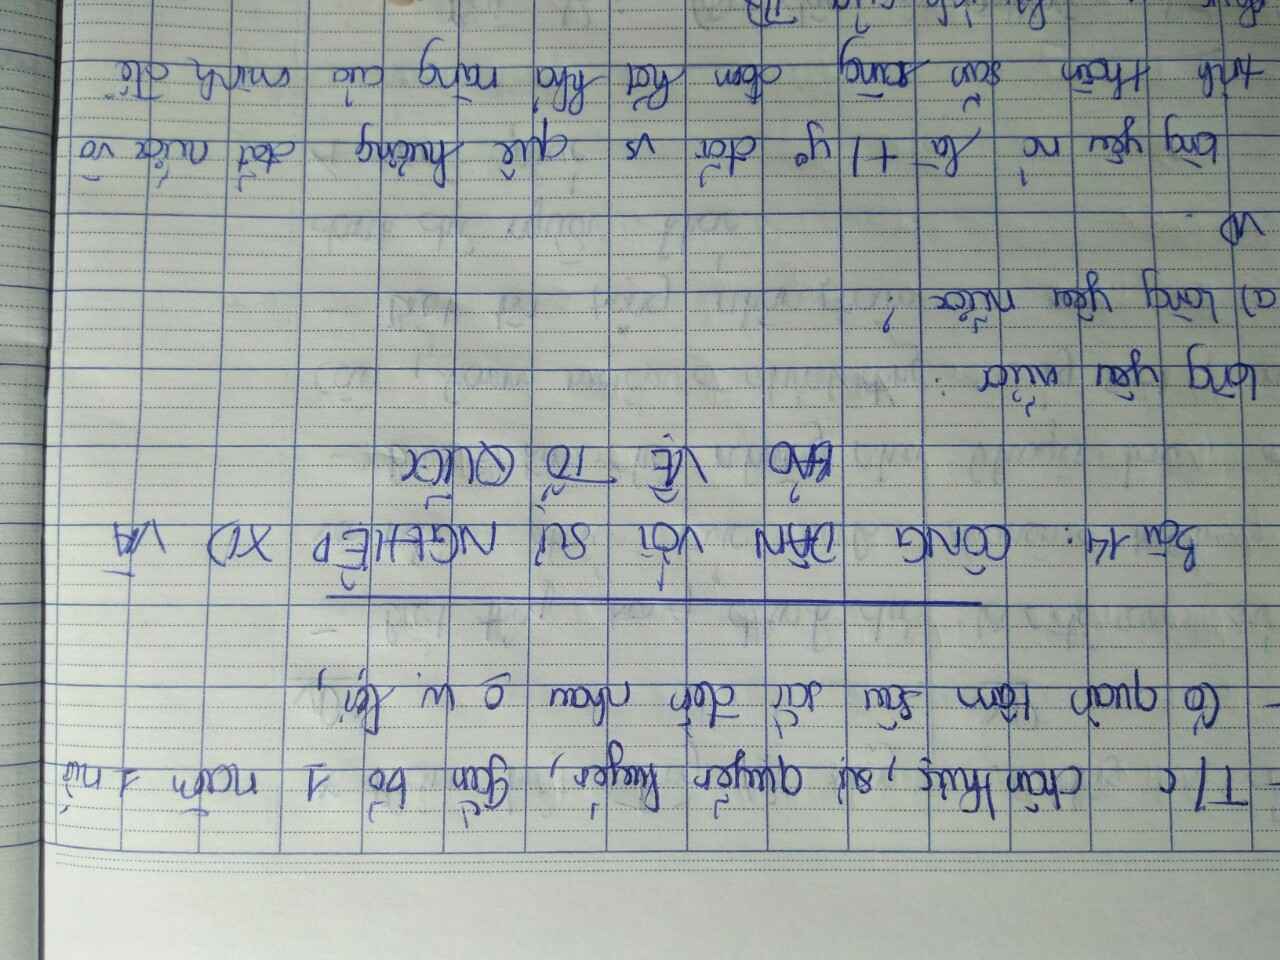 - T/c chân thực, sự quyến luyến, gắn bó 1 nam 1 nữ
- Có quan tâm sâu sắc đến nhau
Bài 14: CÔNG DÂN VỚI SỰ NGHIỆP XD VÀ
BẢO VỆ TỔ QUỐC
Lòng yêu nước:
a) Lòng yêu nước?
VD
Lòng yêu nó là t/ y đối vs quê hương đất nước và
tinh thần sẵn sàng đem hết khả năng của mình để